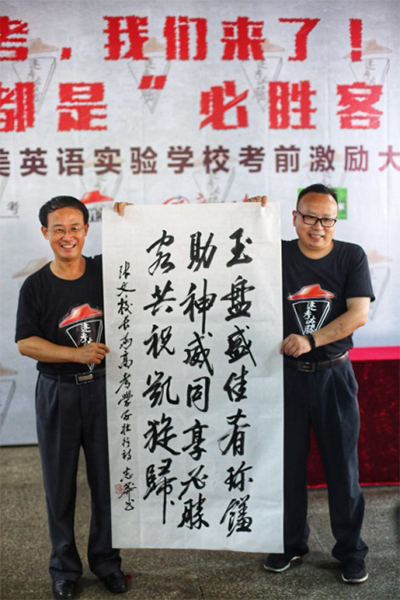 考，我们来了！
都是"必胜客
美英语实验学校考前激励大
玉盘盛佳肴珍馐
助神威同享必胜
客共祝凯旋归
张文校长为高考学子壮行诗
逢考必胜